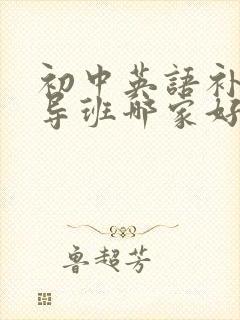 初中英語补
导班哪家好
鲁超芳